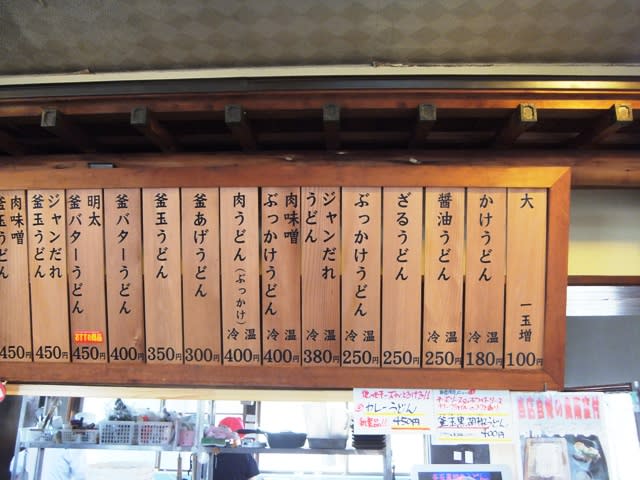 大 一玉増 100円
かけうどん 冷 温 180円
醤油うどん 冷 温 250円
ざるうどん 250円
ぶっかけうどん 冷 温 250円
ジャンだれ
うどん 冷 温 380円
肉味噌
ぶっかけうどん 冷 温 400円
肉うどん(ぶっかけ) 冷 温 400円
釜あげうどん 300円
釜玉うどん 350円
釜バターうどん 400円
明太
釜バターうどん 450円
ジャンだれ
釜玉うどん 450円
肉味噌
釜玉うどん 450円
カレーうどん
450円
400円